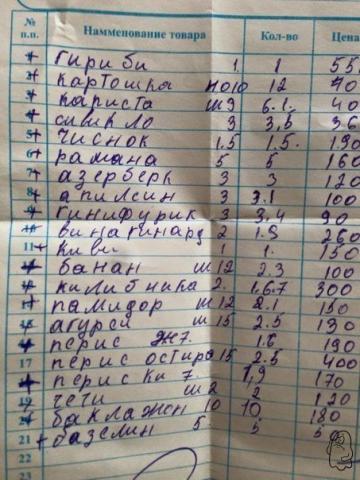 № п.п. Наименование товара Кол-во Цена
1 гири би 1 1 55
2 картошка 10 12 70
3 кариста ш3 6.1. 40
4 свикло 3 3,5 36
5 чиснок 1.5 1.5. 190
6 рамана 5 5 160
7 азерберь 3 3 120
8 апилсин 3 3.1 100
9 гинифурик 3 3,4 90
10 винагинард 2 1.9 260
11 киви 1 1. 150
банан ш 12 2.3 100
килибника 2. 1.6.7 300
памидор ш 12 2.1 150
агурси ш 15 2.5 130
перис ж7. 1.6 190
17 перис остира 15 2.5 400
перис ки 7. 1,9 170
19 чети ш2 2 120
20 баклажен 10 10 180
21 базелин 5. 5 5
22
23